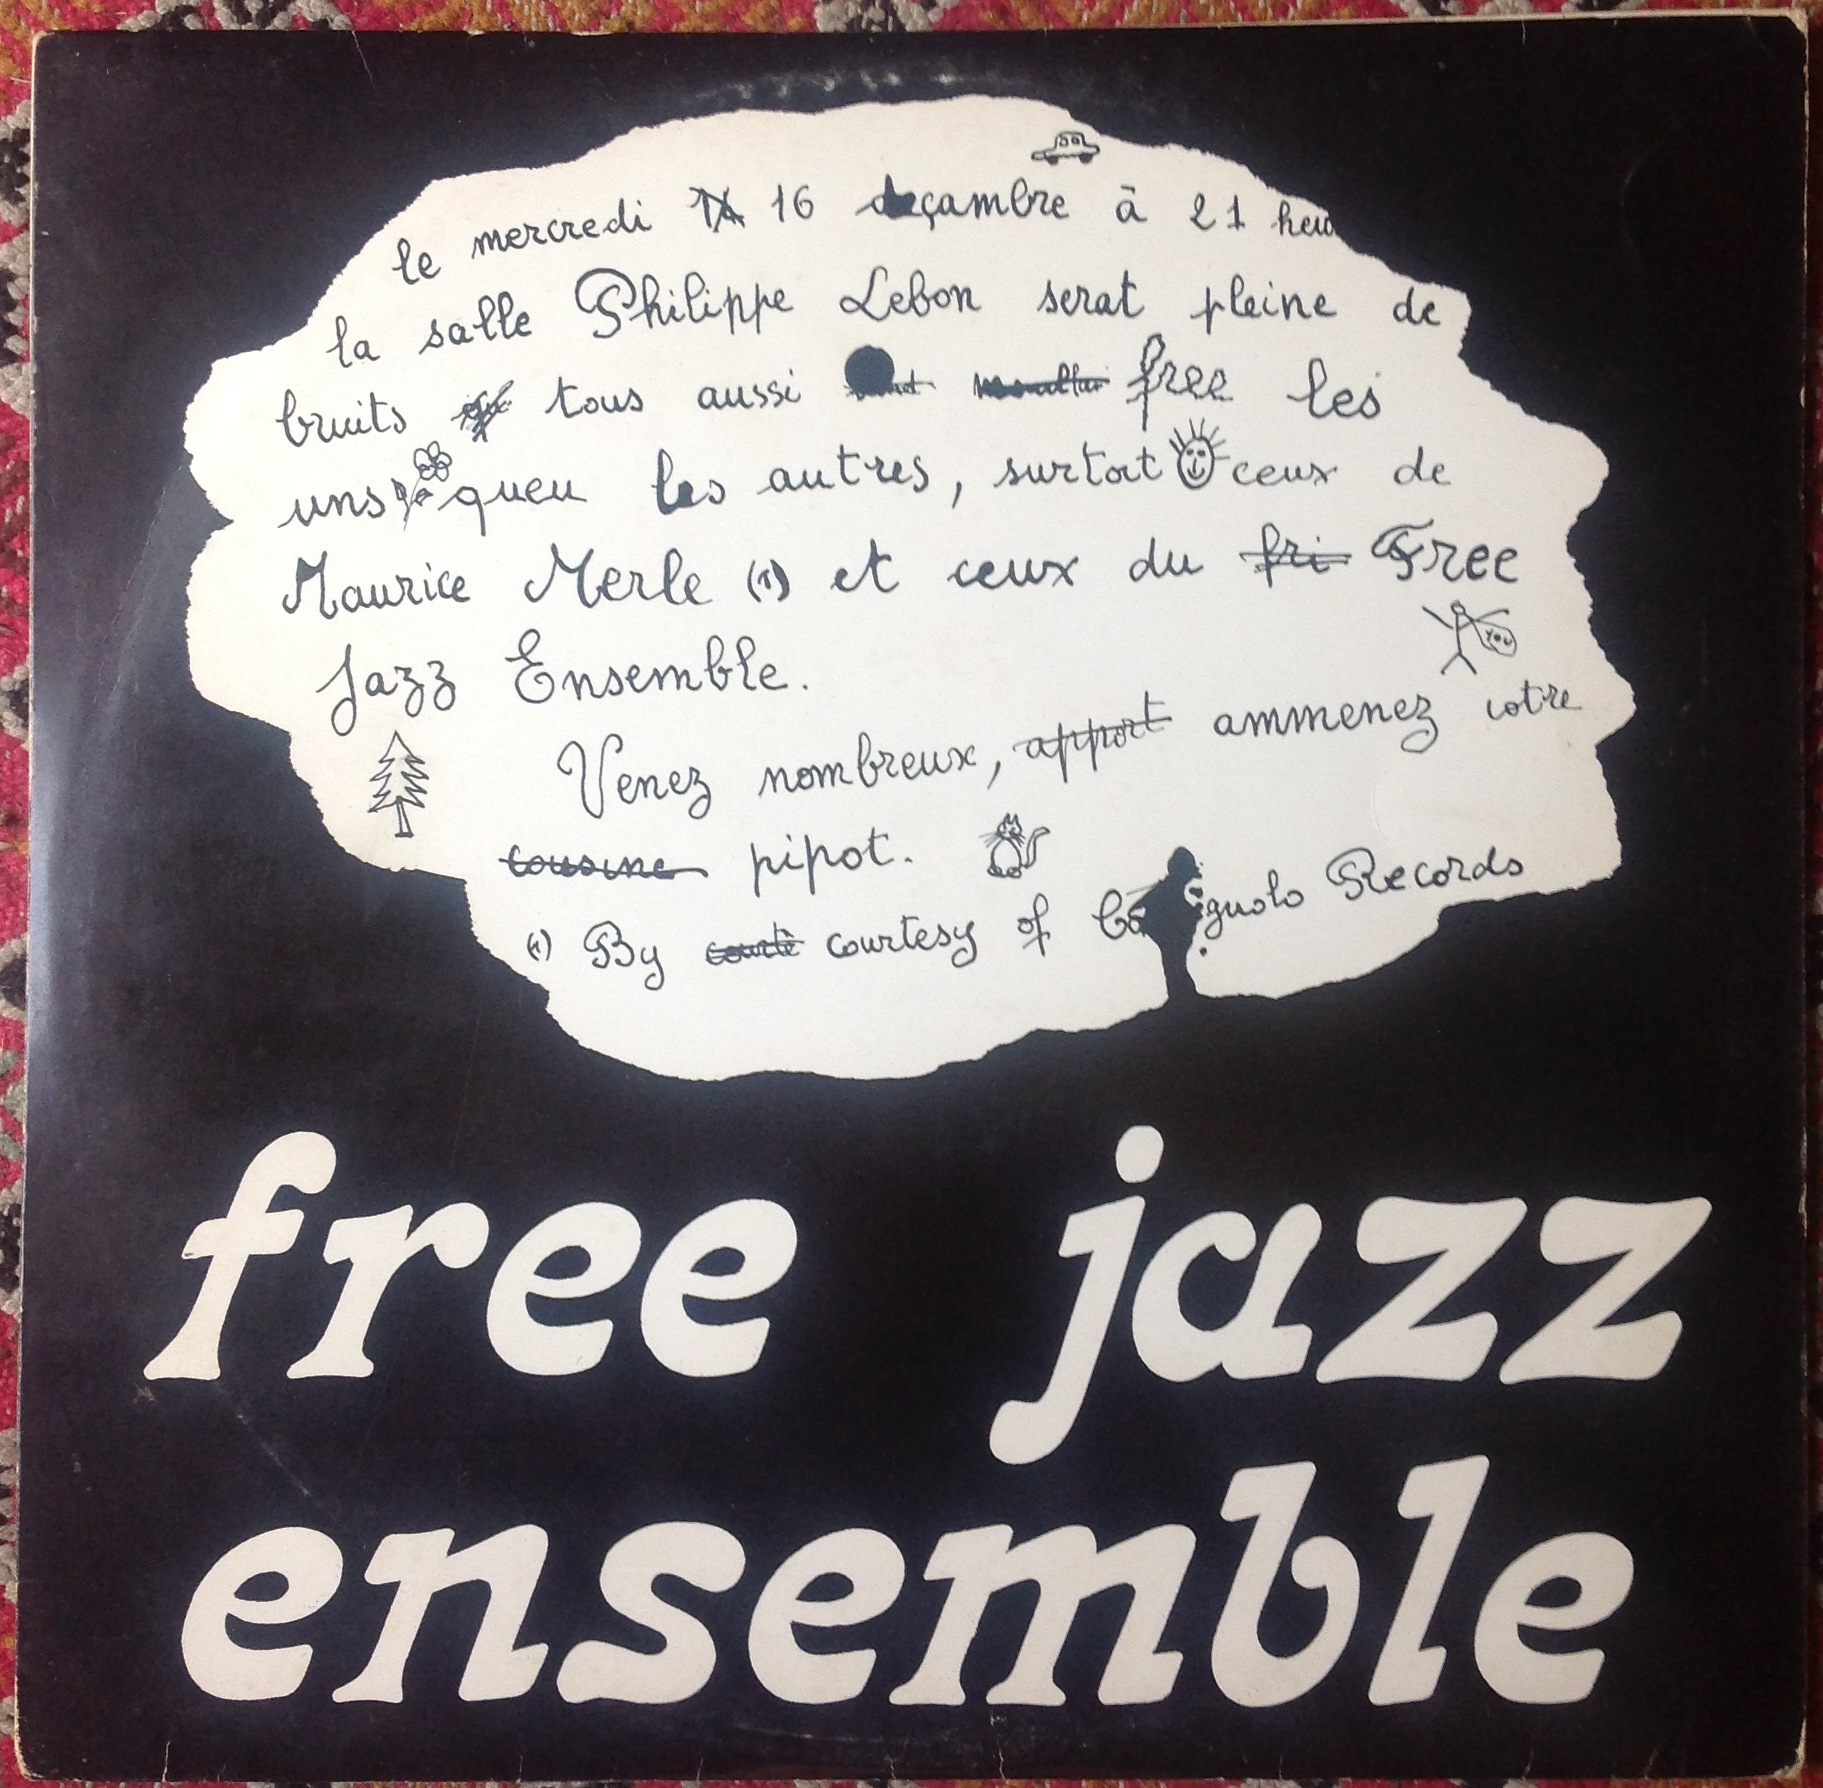 le mercredi 16 deçambre à 21 heu
la salle Philippe Lebon serat pleine de
bruits tous aussi free les
uns queu les autres, surtout ceux de
Maurice Merle (1) et ceux du fri Free
Jazz Ensemble.
Venez nombreux, apport ammenez votre
cousine pipot.
(1) By courtesy of Records
free jazz
ensemble